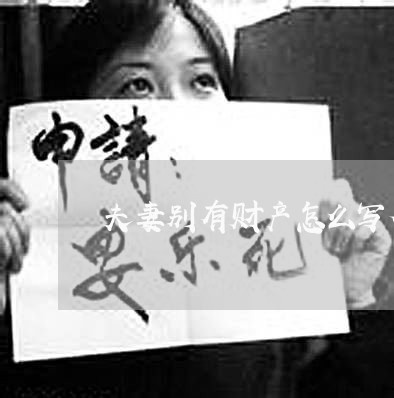 申請：
夫妻别有财产怎么写
安乐死